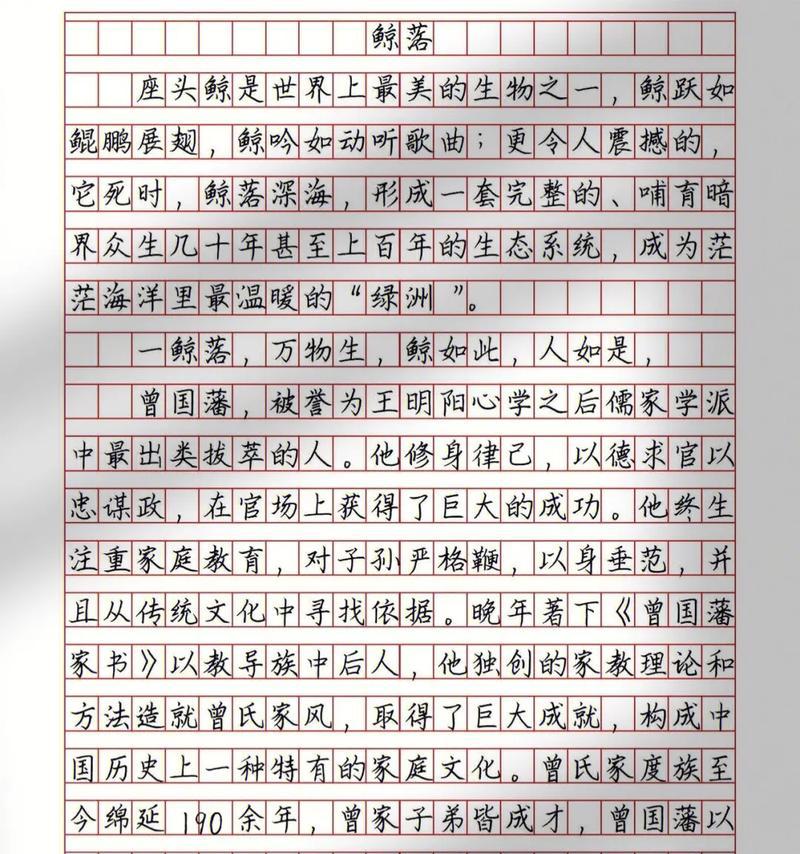 鲸落
座头鲸是世界上最美的生物之一，鲸跃如
鲲鹏展翅，鲸吟如动听歌曲；更令人震撼的，
它死时，鲸落深海，形成一套完整的、哺育暗
界众生几十年甚至上百年的生态系统，成为茫
茫海洋里最温暖的“绿洲”。
一鲸落，万物生，鲸如此，人如是，
曾国藩，被誉为王明阳心学之后儒家学派
中最出类拔萃的人。他修身律己，以德求官以
忠谋政，在官场上获得了巨大的成功。他终生
注重家庭教育，对子孙严格鞭，以身垂范，并
且从传统文化中寻找依据。晚年著下《曾国藩
家书》以教导族中后人，他独创的家教理论和
方法造就曾氏家风，取得了巨大成就，构成中
国历史上一种特有的家庭文化。曾氏家度族至
今绵延190余年，曾家子弟皆成才，曾国藩以